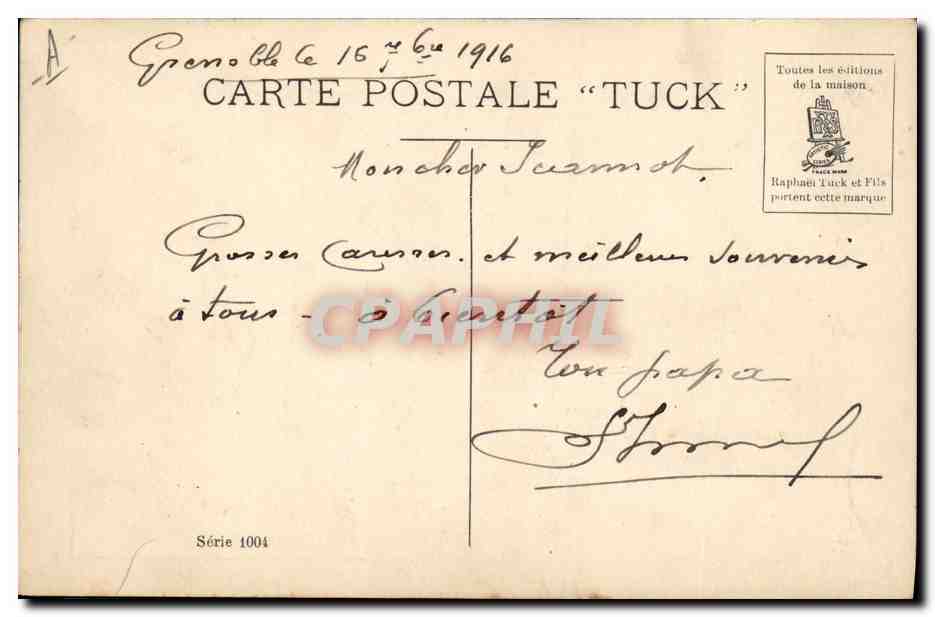 A
Grenoble le 16 9bre 1916
CARTE POSTALE "TUCK"
Toutes les éditions
de la maison
TRADE MARK
Raphaël Tuck et Fils
portent cette marque
Mon cher Jeannot.
Grosses caresses. et meilleurs souvenirs
à tous - à bientôt
CPAPHIL
Ton papa
Série 1004